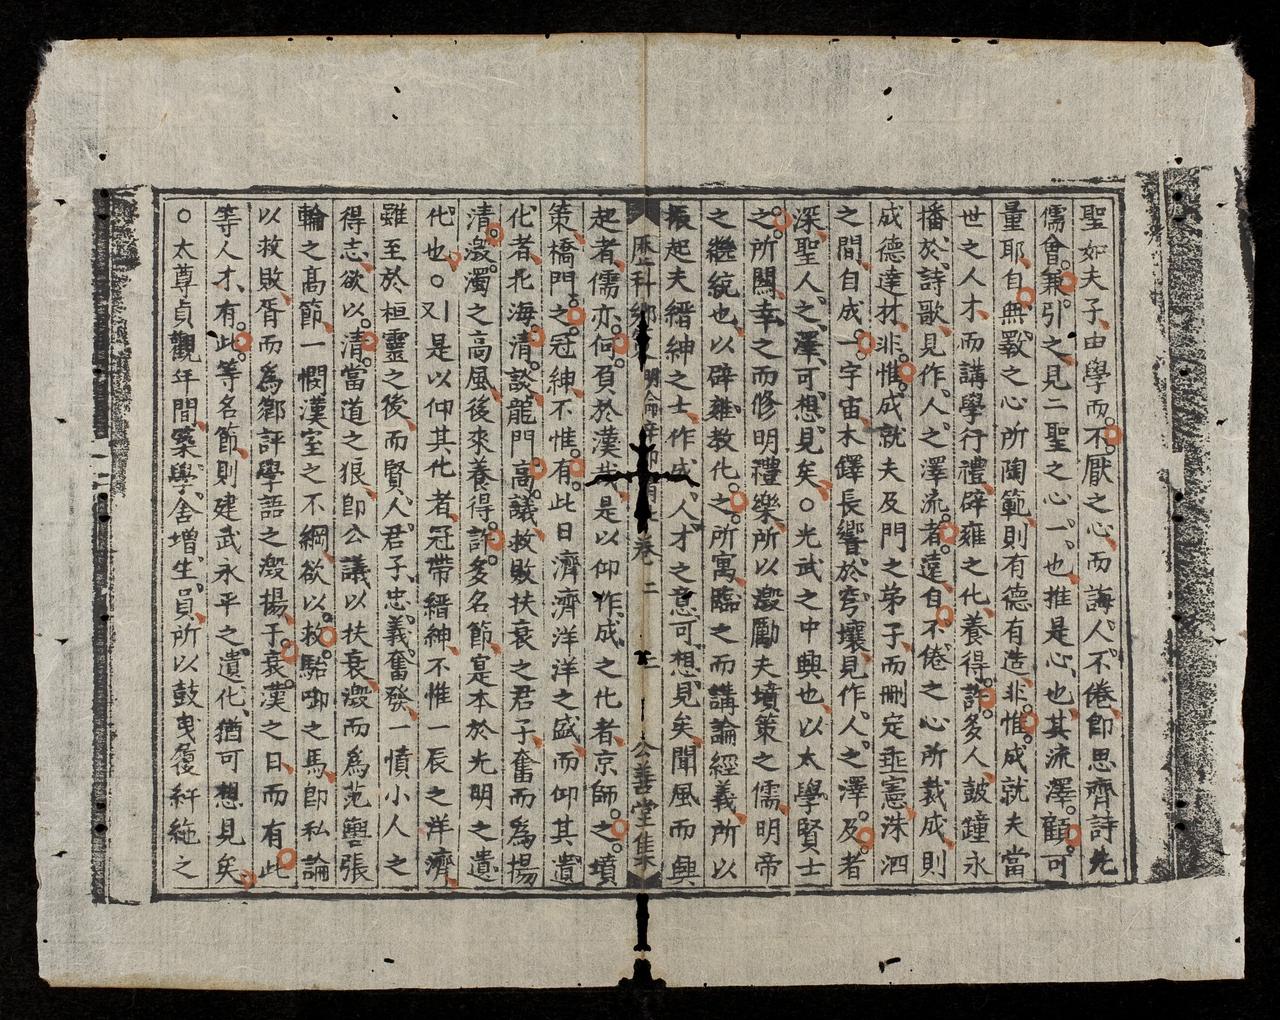 聖如夫子由學而不厭之心而誨人不倦卽思齊詩先
儒會兼引之見二聖之心一也推是心也其流澤顧可
量耶自無斁之心所陶範則有德有造非惟成就夫當
世之人才而講學行禮辟雍之化養得許多人鼓鐘永
播於詩歌見作人之澤流者遠自不倦之心所裁成則
成德達材非惟成就夫及門之弟子而刪定垂憲洙泗
之間自成一宇宙木鐸長響於穹壤見作人之澤及者
深聖人之澤可想見矣○光武之中興也以太學賢士
之所關幸之而修明禮樂所以激勵夫墳策之儒明帝
之繼統也以辟雍教化之所寓臨之而講論經義所以
振起夫縉紳之士作成人才之意可想見矣聞風而興
歷科鄉 明倫 卷二 公善堂集
起者儒亦何負於漢哉是以仰作成之化者京師之墳
策橋門之冠紳不惟有此日濟濟洋洋之盛而仰其遺
化者北海清談龍門高議救敗扶衰之君子奮而爲揚
清激濁之高風後來養得許多名節寔本於光明之遺
化也○又是以仰其化者冠帶縉紳不惟一辰之洋濟
雖至於桓靈之後而賢人君子忠義奮發一憤小人之
得志欲以清當道之狼卽公議以扶衰激而爲范轝張
輪之高節一憫漢室之不綱欲以救駘啣之馬卽私論
以救敗胥而爲鄉評學語之激揚于衰漢之日而有此
等人才有此等名節則建武永平之遺化猶可想見矣
○太尊貞觀年間築學舍增生員所以鼓曳履紆絁之